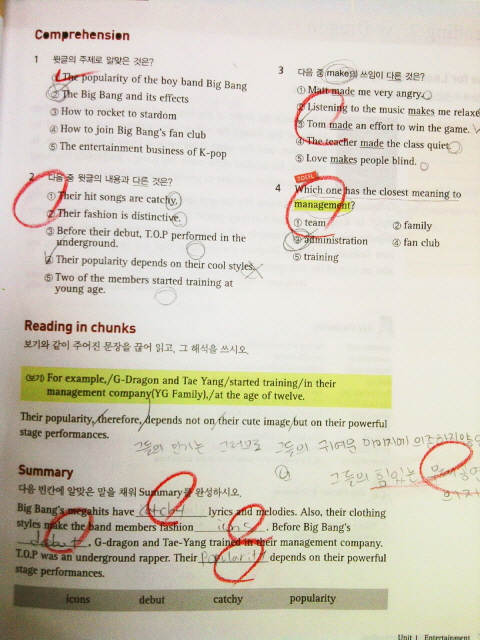 Comprehension
1 윗글의 주제로 알맞은 것은?
① The popularity of the boy band Big Bang
② The Big Bang and its effects
③ How to rocket to stardom
④ How to join Big Bang's fan club
⑤ The entertainment business of K-pop
2 다음 중 윗글의 내용과 다른 것은?
① Their hit songs are catchy.
② Their fashion is distinctive.
③ Before their debut, T.O.P performed in the
underground.
④ Their popularity depends on their cool styles.
⑤ Two of the members started training at
young age.
3 다음 중 make의 쓰임이 다른 것은?
① Matt made me very angry.
② Listening to the music makes me relaxe
③ Tom made an effort to win the game.
④ The teacher made the class quiet.
⑤ Love makes people blind.
TOEFL
4 Which one has the closest meaning to
management?
① team ② family
③ administration ④ fan club
⑤ training
Reading in chunks
보기와 같이 주어진 문장을 끊어 읽고, 그 해석을 쓰시오.
(보기) For example,/G-Dragon and Tae Yang/started training/in their
management company(YG Family),/at the age of twelve.
Their popularity, therefore, depends not on their cute image but on their powerful
stage performances.
그들의 인기는 그러므로 그들의 귀여운 이미지에 의존하지않
그들의 힘있는
Summary
다음 빈칸에 알맞은 말을 채워 Summary를 완성하시오.
Big Bang's megahits have catchy lyrics and melodies. Also, their clothing
styles make the band members fashion icons. Before Big Bang's
debut, G-dragon and Tae-Yang trained in their management company.
T.O.P was an underground rapper. Their popularity depends on their powerful
stage performances.
icons debut catchy popularity
Unit 1 Entertainment